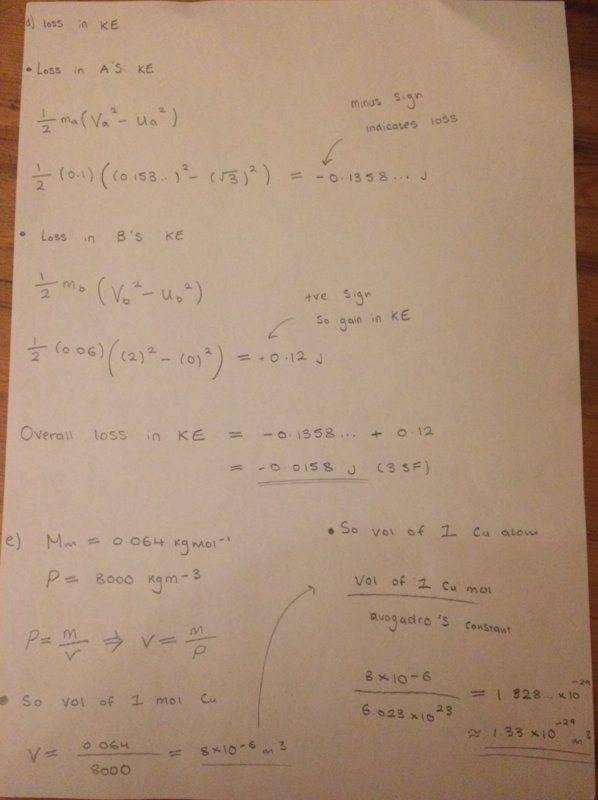 d) loss in KE
• Loss in A'S KE
1/2 ma (Va² - ua²)
minus sign
indicates loss
1/2 (0.1) ((0.153..)² - (√3)²) = -0.1358... J
• Loss in B's KE
1/2 mb (Vb² - ub²)
+ve sign
So gain in KE
1/2 (0.06) ((2)² - (0)²) = +0.12 J
Overall loss in KE = -0.1358... + 0.12
= -0.0158 J (3SF)
e) Mm = 0.064 kgmol⁻¹
ρ = 8000 kgm⁻³
ρ = m/V ⇒ V = m/ρ
• So vol of 1 mol Cu
V = 0.064/8000 = 8×10⁻⁶ m³
• So vol of 1 Cu atom
vol of 1 Cu mol
avogadro's constant
8×10⁻⁶/6.023×10²³ = 1.328...×10⁻²⁹
≈ 1.33×10⁻²⁹ m³